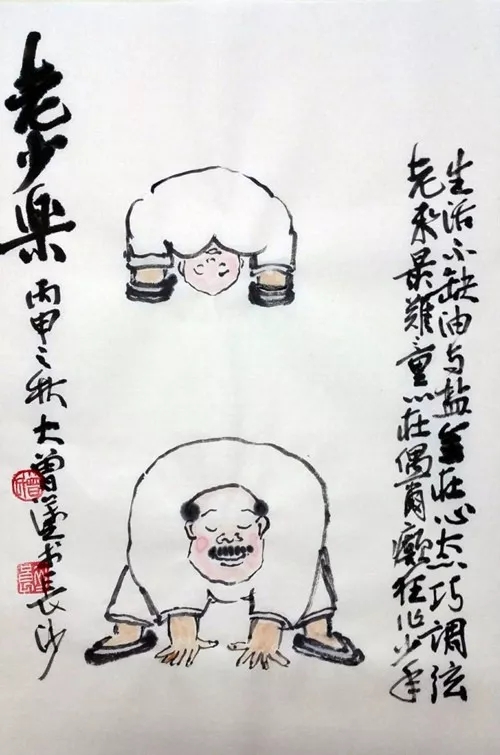 生活不缺油与盐全在心态巧调弦
老来最难童心在偶爾癫狂作少年
老少楽
丙申之秋大曾书长沙